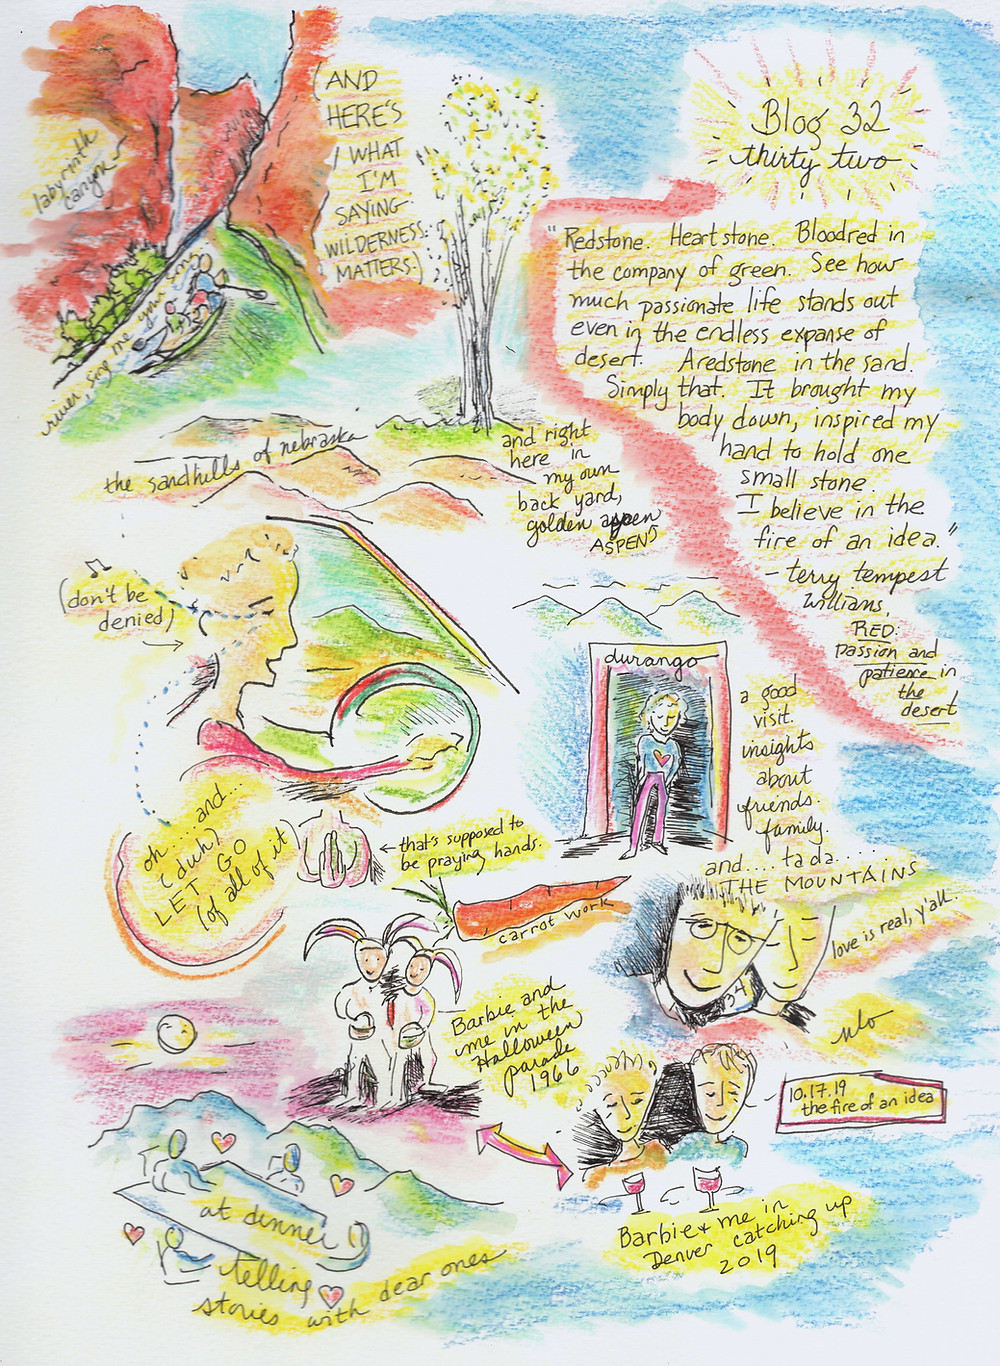 Blog 32
thirty two
(AND
HERE'S
WHAT
I'M
SAYING
WILDERNESS
MATTERS.)
labyrinth
canyon
river, sing me your song
"Redstone. Heartstone. Bloodred in
the company of green. See how
much passionate life stands out
even in the endless expanse of
desert. Aredstone in the sand.
Simply that. It brought my
body down, inspired my
hand to hold one
small stone.
I believe in the
fire of an idea."
- terry tempest
Williams,
RED:
passion and
patience in
the
desert
the sandhills of nebraska
and right
here in
my own
back yard,
golden aspen
ASPEN
(don't be
denied)
durango
a good
visit.
insights
about
friends.
family.
and.... ta da.....
THE MOUNTAINS
oh....and...
(duh)
LET GO
(of all of it
← that's supposed to
be praying hands.
carrot work
love is real, y'all.
34
Barbie and
me in the
Halloween
parade
1966
10.17.19
the fire of an idea
Barbie & me in
Denver catching up
2019
at dinner
telling
stories with dear ones